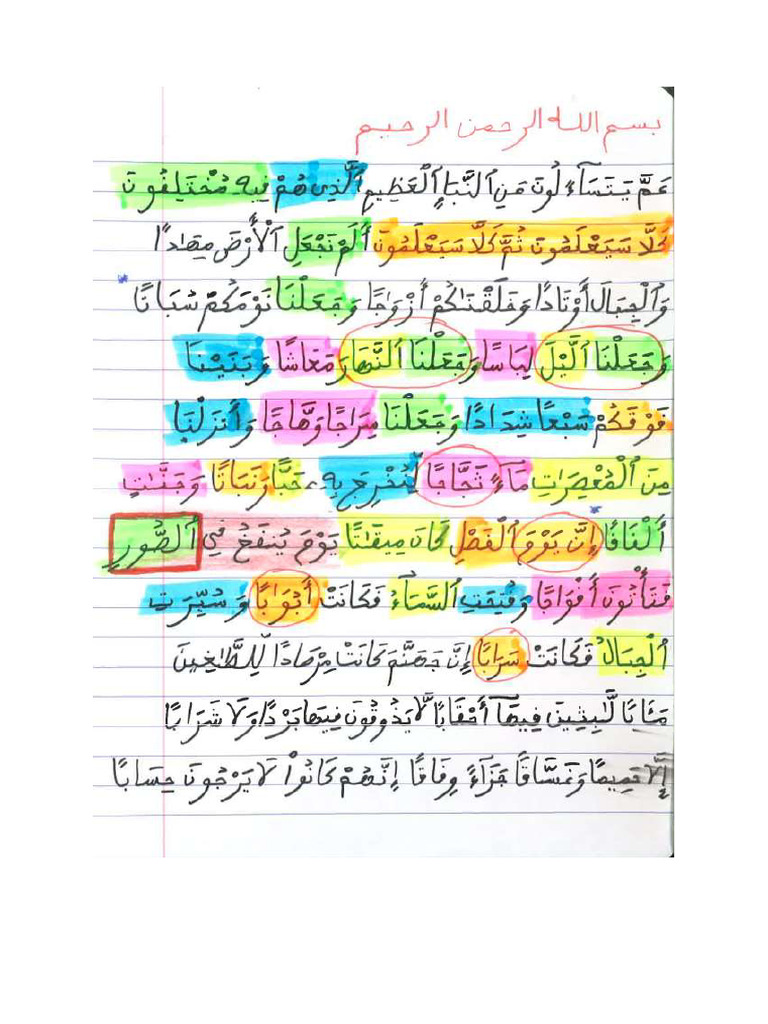 بسم الله الرحمن الرحيم
عَمَّ يَتَسَآءَلُونَ عَنِ ٱلنَّبَإِ ٱلْعَظِيمِ ٱلَّذِى هُمْ فِيهِ مُخْتَلِفُونَ
كَلَّا سَيَعْلَمُونَ ثُمَّ كَلَّا سَيَعْلَمُونَ أَلَمْ نَجْعَلِ ٱلْأَرْضَ مِهَٰدًا
وَٱلْجِبَالَ أَوْتَادًا وَخَلَقْنَٰكُمْ أَزْوَٰجًا وَجَعَلْنَا نَوْمَكُمْ سُبَاتًا
وَجَعَلْنَا ٱلَّيْلَ لِبَاسًا وَجَعَلْنَا ٱلنَّهَارَ مَعَاشًا وَبَنَيْنَا
فَوْقَكُمْ سَبْعًا شِدَادًا وَجَعَلْنَا سِرَاجًا وَهَّاجًا وَأَنزَلْنَا
مِنَ ٱلْمُعْصِرَٰتِ مَآءً ثَجَّاجًا لِّنُخْرِجَ بِهِۦ حَبًّا وَنَبَاتًا وَجَنَّٰتٍ
أَلْفَافًا إِنَّ يَوْمَ ٱلْفَصْلِ كَانَ مِيقَٰتًا يَوْمَ يُنفَخُ فِي ٱلصُّورِ
فَتَأْتُونَ أَفْوَاجًا وَفُتِحَتِ ٱلسَّمَآءُ فَكَانَتْ أَبْوَٰبًا وَسُيِّرَتِ
ٱلْجِبَالُ فَكَانَتْ سَرَابًا إِنَّ جَهَنَّمَ كَانَتْ مِرْصَادًا لِّلطَّٰغِينَ
مَـَٔابًا لَّٰبِثِينَ فِيهَآ أَحْقَابًا لَّا يَذُوقُونَ فِيهَا بَرْدًا وَلَا شَرَابًا
إِلَّا حَمِيمًا وَغَسَّاقًا جَزَآءً وِفَاقًا إِنَّهُمْ كَانُوا۟ لَا يَرْجُونَ حِسَابًا